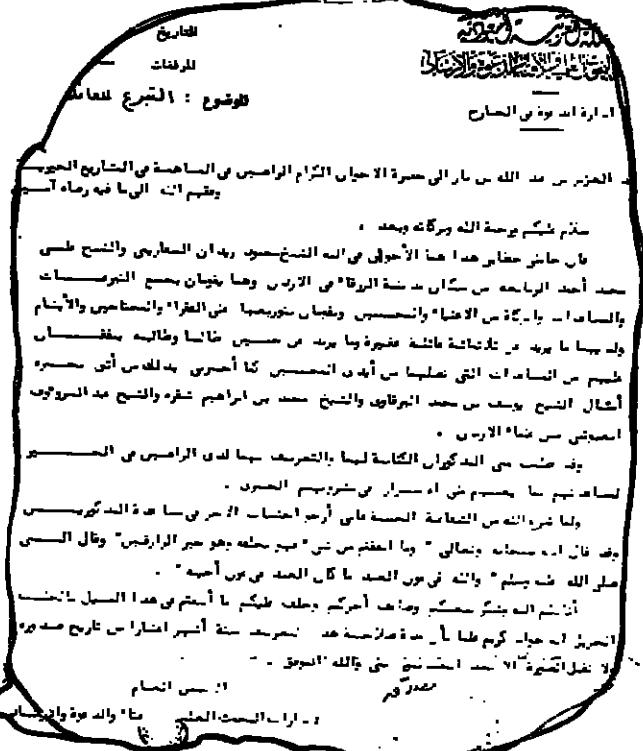 التاريخ
المرفقات
الموضوع : التبرع
ادارة الدعوة في الخارج
من عبد العزيز بن عبد الله بن باز الى حضرة الاخوان الكرام الراغبين في المساهمة في المشاريع الخيرية
وفقهم الله الى ما فيه رضاه آمين
سلام عليكم ورحمة الله وبركاته وبعد ،
فان حاملي خطابي هذا هما الأخوان في الله الشيخ محمود زيدان والشيخ علي
محمد أحمد من سكان مدينة الزرقاء في الاردن وهما يقومان بجمع التبرعات
والمساعدات والزكاة من الاغنياء والمحسنين ويقومان بتوزيعها على الفقراء والمحتاجين والأيتام
ولديهما ما يزيد عن ثلاثمائة عائلة فقيرة وما يزيد عن خمسين طالبا وطالبة ينفقان
عليهم من المساعدات التي تصلهما من أيدي المحسنين كما أخبرني بذلك من أثق بخبره
أمثال الشيخ يوسف بن محمد البرقاوي والشيخ محمد بن ابراهيم شقره والشيخ عبد الرووف
العبوشي من علماء الاردن .
وقد طلب مني المذكوران الكتابة لهما والتعريف بهما لدى الراغبين في الخير
لمساعدتهم بما يعينهم على الاستمرار في مشروعهم الخيري .
ولما شرع الله من الشفاعة الحسنة فاني أرجو احتساب الاجر في مساعدة المذكورين
وقد قال الله سبحانه وتعالى " وما انفقتم من شيء فهو يخلفه وهو خير الرازقين" وقال النبي
صلى الله عليه وسلم " والله في عون العبد ما كان العبد في عون أخيه " .
أثابكم الله وشكر سعيكم وضاعف أجركم وخلف عليكم ما أنفقتم في هذا السبيل بالخلف
الجزيل انه جواد كريم علما بأن مدة صلاحية هذا التعريف ستة أشهر اعتبارا من تاريخ صدوره
والله الموفق .
الرئيس العام
لادارات البحوث العلمية والافتاء والدعوة والارشاد